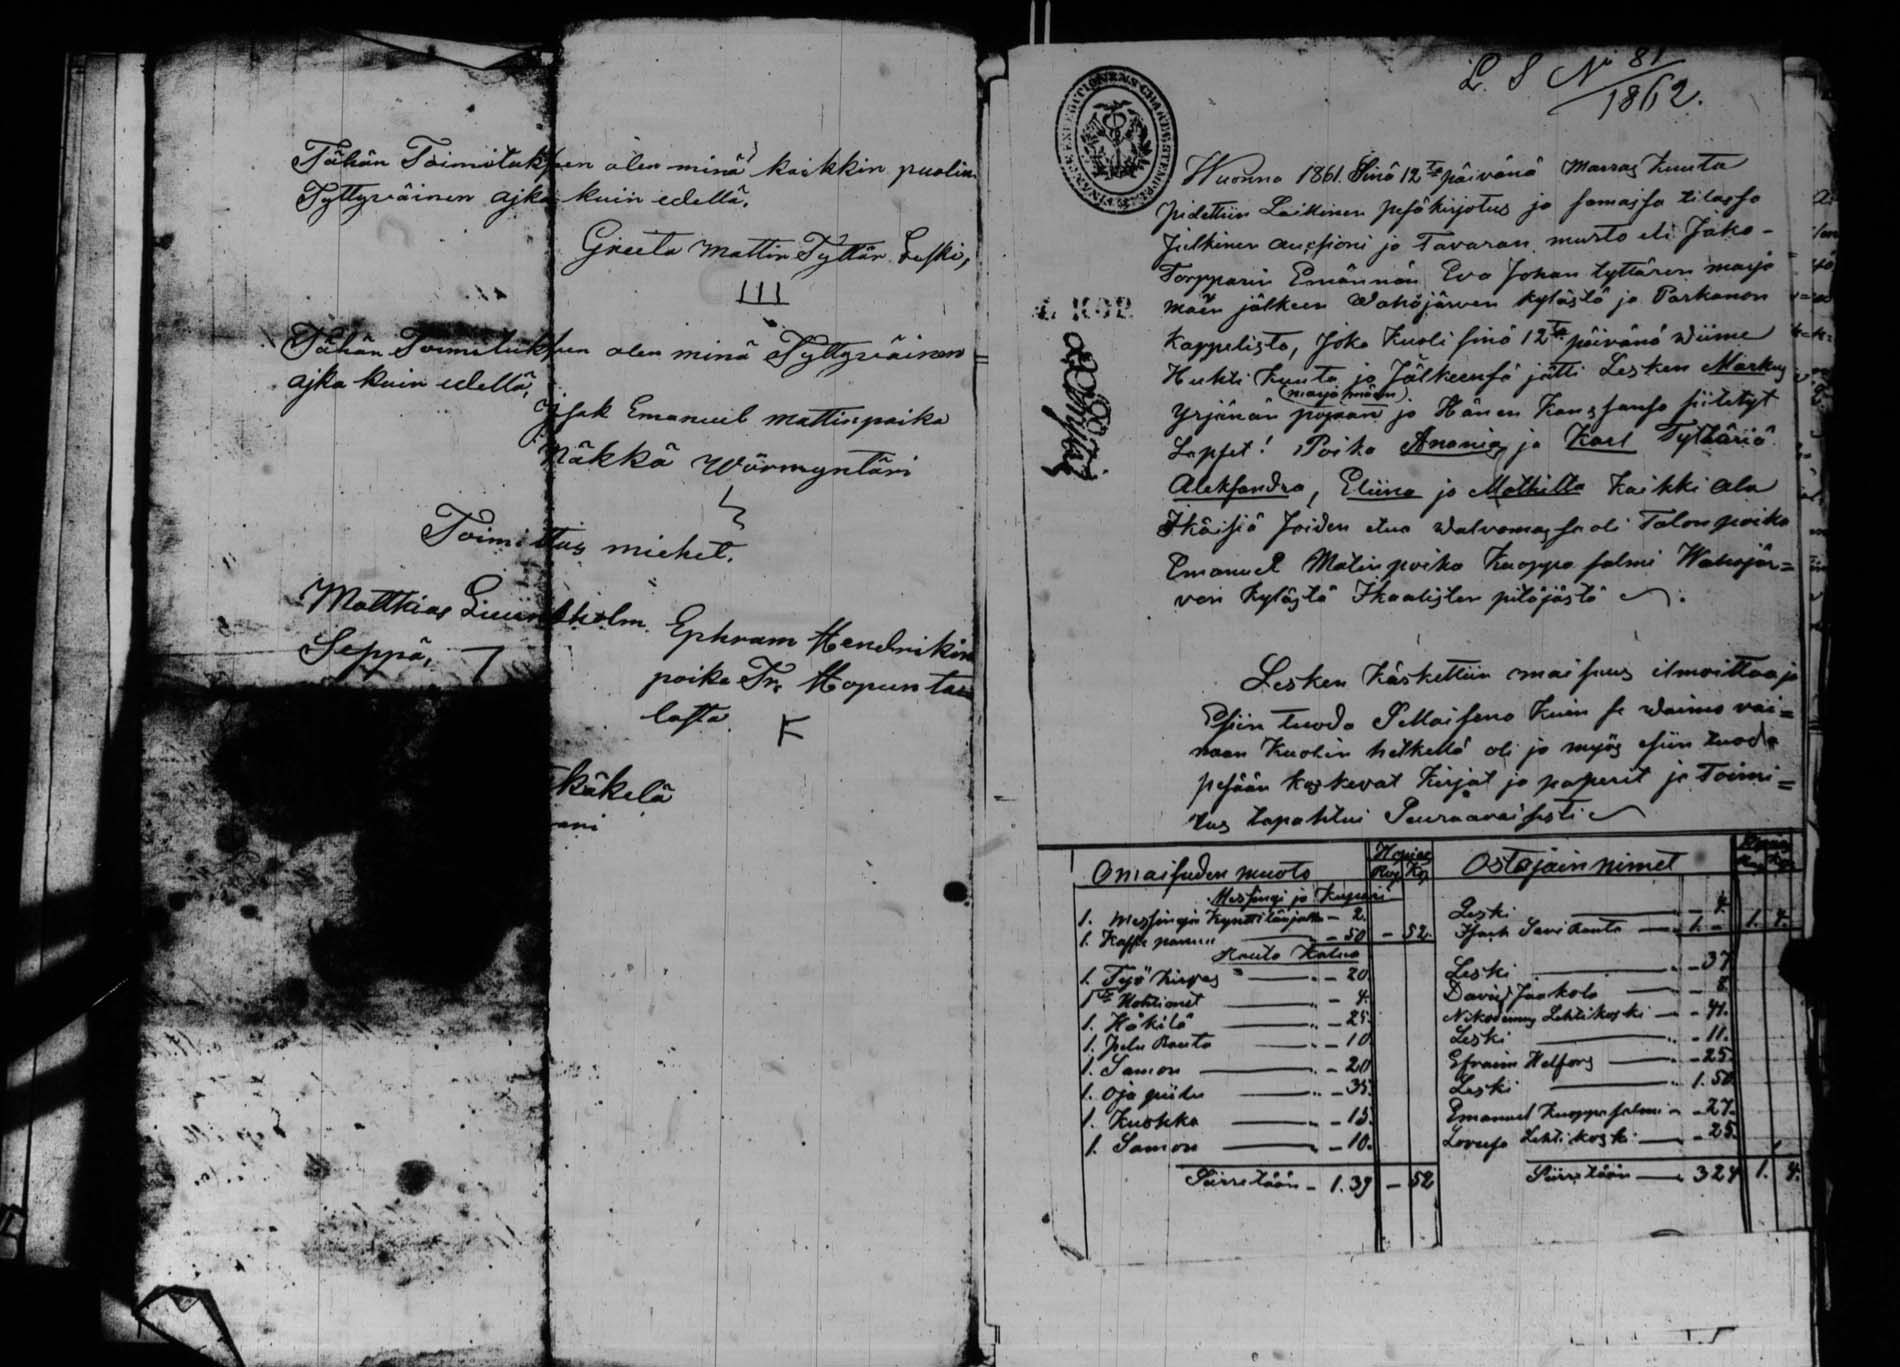 Tähän Toimituksen olen minä kaikkin puolin
Tyttyväinen ajka kuin edellä.
Greeta Mattin Tyttär Leski,
Tähän Toimituksen olen minä Tyttyväinen
ajka kuin edellä,
Isak Emanuel Mattinpoika
Näkkä Wörmyntäri
Toimitus miehet.
Matthias Lindholm
Seppä,
Ephram Hendrikin
poika Tr. Hopunta
lasta
käkelä
L. S No 81
1862.
4. KOP.
Wuonna 1861. Sinä 12ta päivänä Marras Kuuta
pidettiin Laillinen pesäkirjotus ja samassa tilassa
Julkinen aucsioni ja Tavaran muuto eli Jako-
Torpparin Emännän Eva Johan tyttären marja
mäen jälkeen Wahojärven kylästä ja Parkanon
Kappelista, Joka Kuoli sinä 12ta päivänä wiime
Huhti Kuuta ja Jälkeensä jätti Lesken Markus
Yrjänän pojaan (marja mäen) ja Hänen Kanssansa siitetyt
Lapset! Poika Ananias ja Karl Tyttäriä
Aleksandra, Eliina ja Mathilta Kaikki ala
Ikäisiä Joiden etua walvomassa oli Talonpoika
Emanuel Matinpoika Kuoppa salmi Wahojär=
ven Kylästä Ikaalisten pitäjästä
Lesken Käskettiin omaisuus ilmoittaa ja
Esiin tuoda Sellaisena Kuin se waimo vai=
naan Kuolin hetkellä oli ja myös esiin tuoda
pesään koskevat Kirjat ja paperit ja Toimi=
tus tapahtui Seuraavaisesti
Omaisuden muoto Hopias Ostajain nimet Hopias
Rup Kop
Messingi ja Kupari
1. Messingin Kynttilänjalka - 2. Leski - 4.
1. Kaffe pannu - 50 - 52. Isak Savi Ranta 1. - 1. 4.
Rauta Kalua
1. Työ kirves - 20 Leski - 37
1 Hohtimet - 4. David Jaakola - 8.
1. Häkilä - 25. Nikodemus Lehtikoski - 41.
1. Rauta - 10 Leski - 11.
1. Samon - 20 Efraim Helfors - 25.
1. Oja - 35. Leski 1. 50
1. Kuokka - 15. Emanuel Kuoppasalmi - 27.
1. Samon - 10. Lovisa Lehtikoski - 25.
Siirretään - 1. 39 - 52 Siirretään 3 24 1. 4.